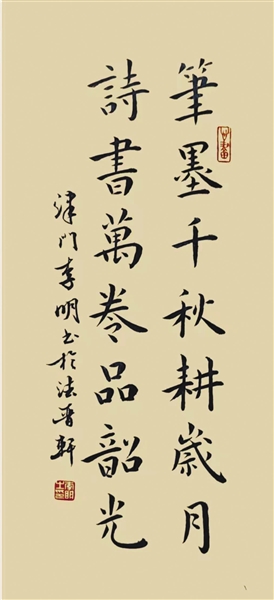 筆墨千秋耕歲月
詩書萬卷品韶光
津门李明书於法晋轩